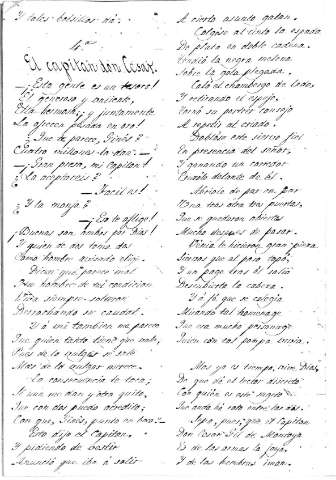 Y tales bolsillos dá.
4.º
El capitan don Cesar.
¡Esta gente es un tesoro!
¡Y generoso y confiado,
Ella hermosa; y justamente
La ofrecen pesada en oro!
¿Que te parece, Ginés?
Cuatro millones la dan:—
—¡Gran presa, mi Capitan!
¿La aceptareis?
—Facil es!
¿Y la monja?
—¡Eso te aflige!
¡Buenas son ambas por Dios!
Y quien de dos toma dos
Como hombre avisado elige.
Dicen que parece mal
En hombre de mi condicion
Vivir siempre
Derrochando su caudal.
Y á mi tambien me parece
Que quien tanto tiene que
Pues de lo vulgar se sale
Mas de lo vulgar merece.
La consecuencia te toca;
Si uno me dan y otro quito,
Que con dos puedo acredito;
Con que, Ginés, punto en boca.—
Esto dijo el Capitan.
Y pidiendo de vestir
Anunció que iba á salir
A cierto asunto galan.
Colgóse al cinto la espada
De plata en doble cadena.
Tendió la negra melena
Sobre la gola plegada.
Caló el chambergo de lado,
Y retirando el espejo,
Tomó su postrer consejo
A repetir al criado.
Doblóse este siervo fiel
En presencia del señor,
Y ganando un corredor
Cuarto delante de él.
Abriólo de par en par
Una tras otra tres puertas,
Que se quedaron abiertas
Mucho despues de pasar.
Venia le hicieron gran pieza
Siervos que al paso topó,
Y un page tras él salió
Descubierta la cabeza.
Y á fé, que se colegia
Mirando tal homenage
Que era mucho personage
Quien con tal pompa
Mas ya es tiempo, vive Dios,
De que dé el lector discreto
Con quién es este sugeto
Que anda há rato entre los dos.
Sepa, pues, que el Capitan
Don Cesar Gil de Montoya
Es de las armas la joya
Y de las hembras iman.